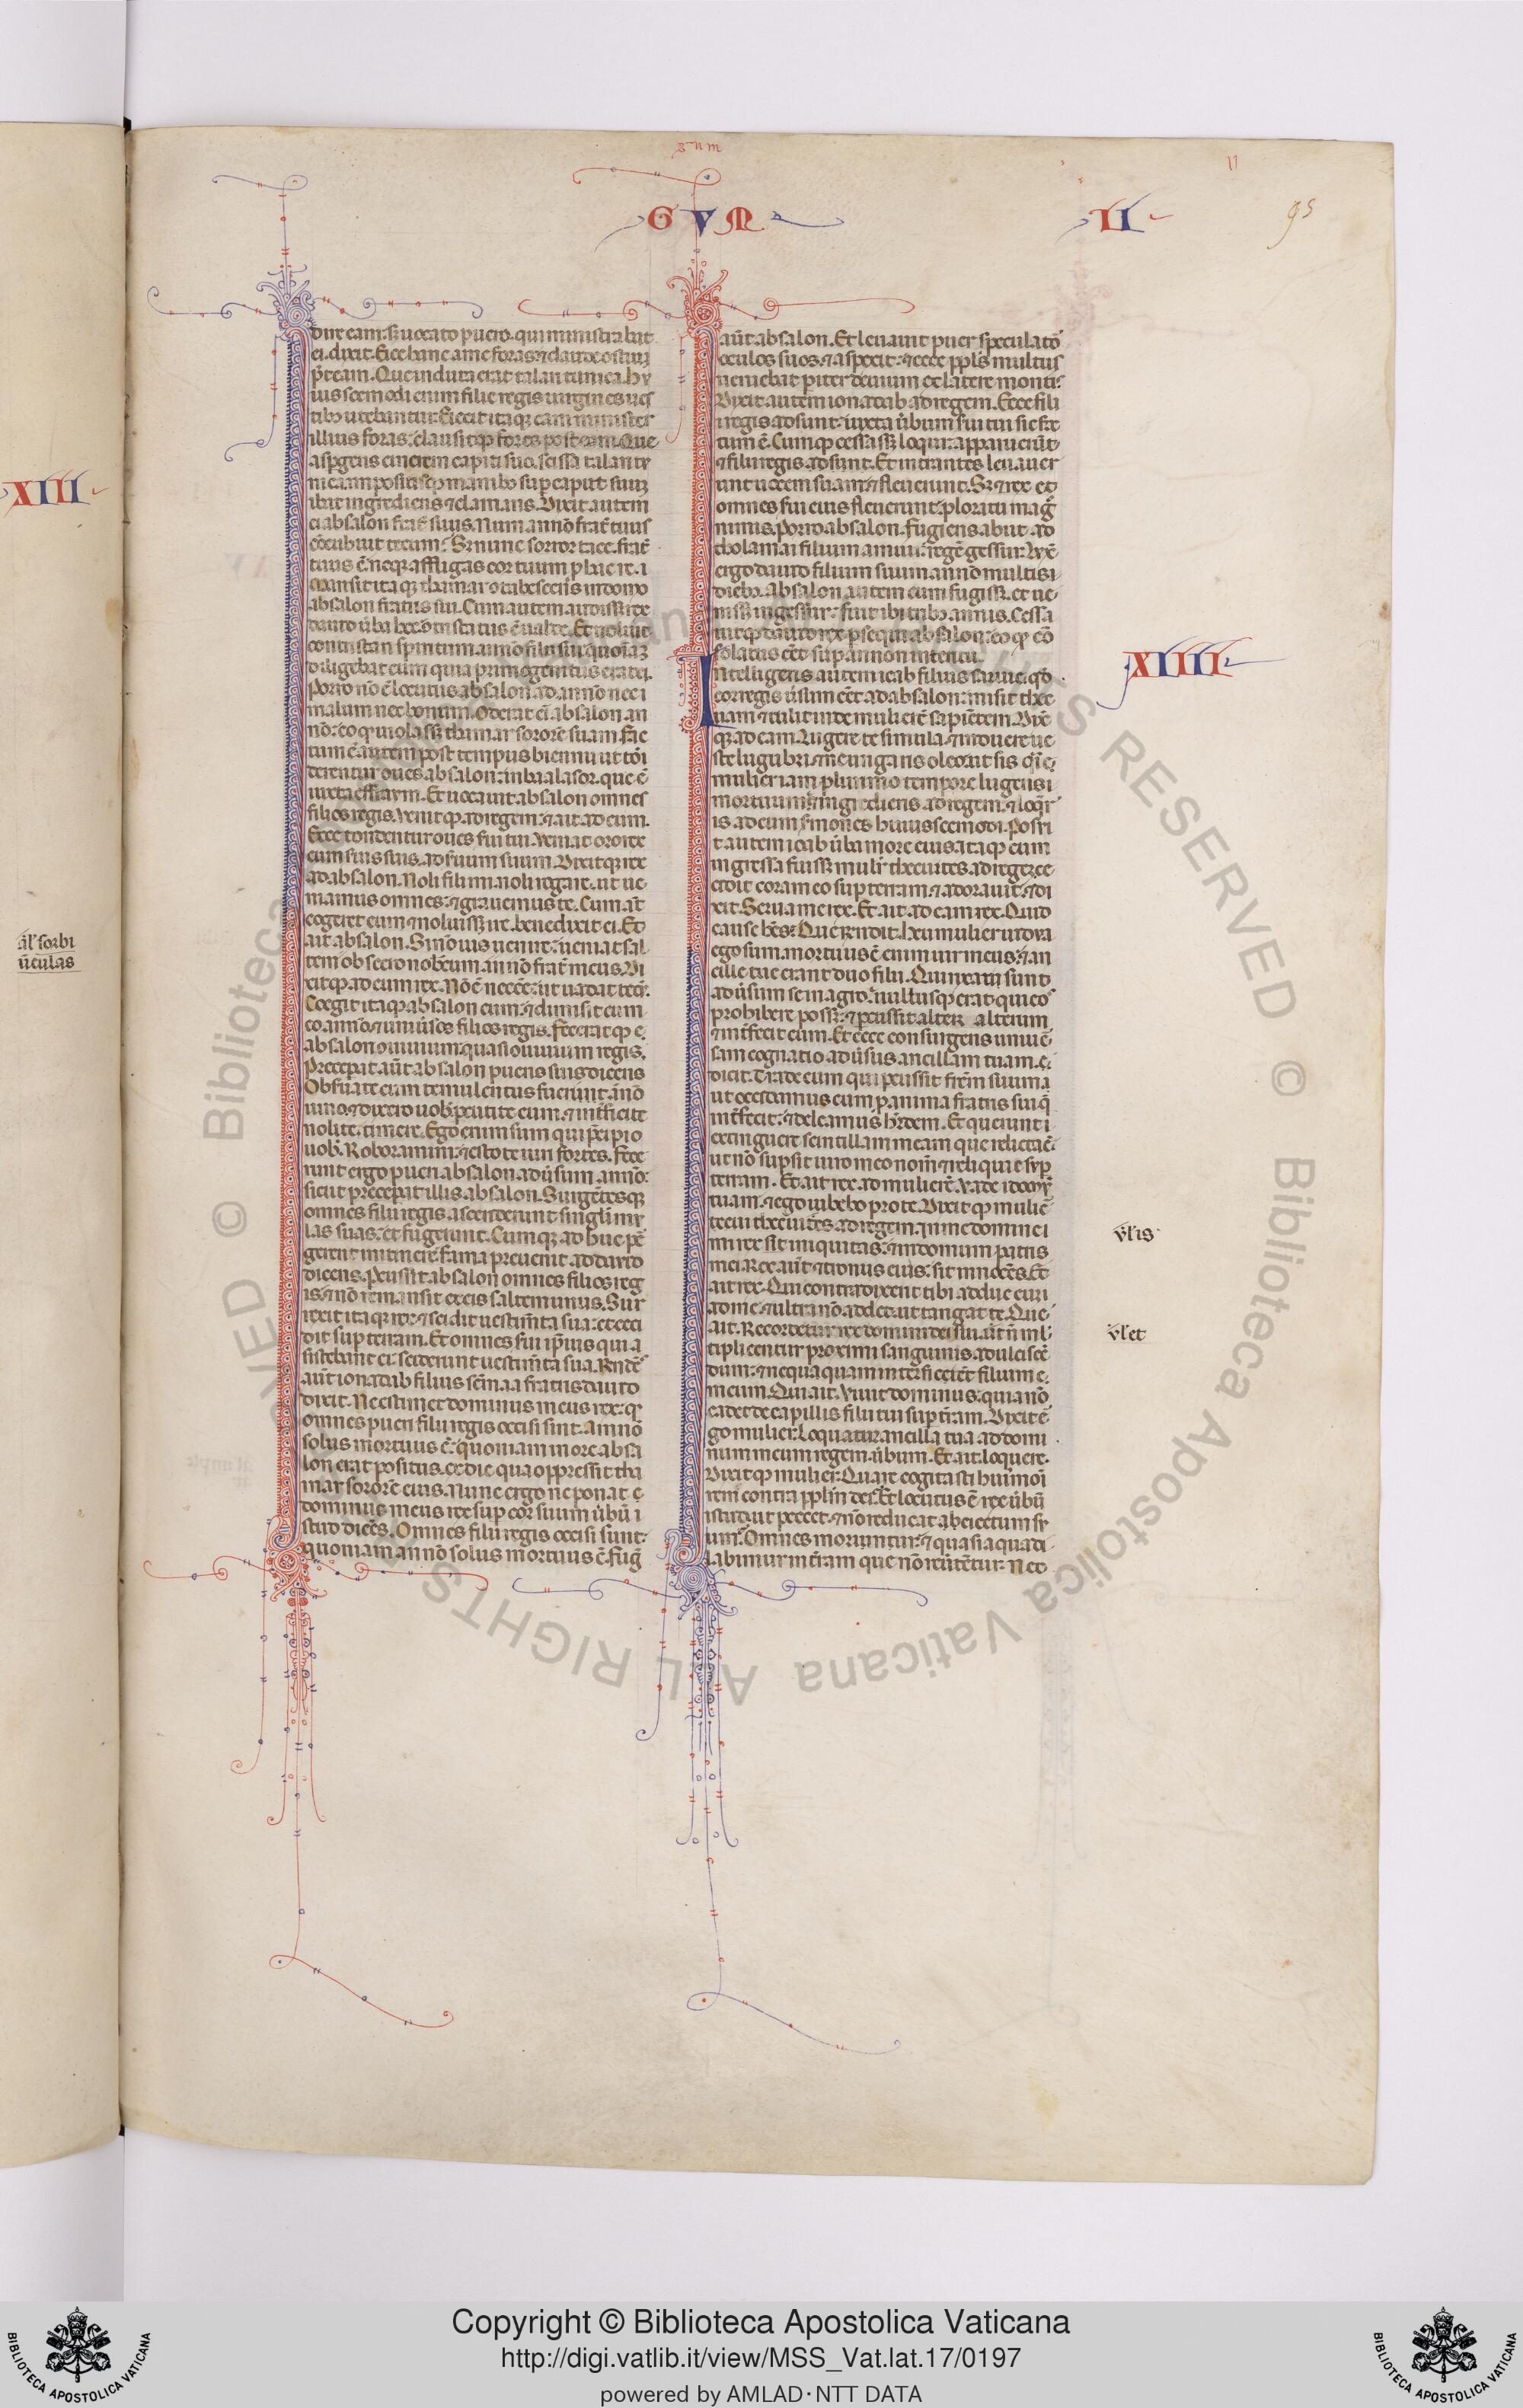 GVM
II
95
XIII
al' sorbi
ūculas
dire eam. sꝫ uocato puero. qui ministrabat
ei. dixit. Eice hanc a me foras. ⁊ claude ostiuꝫ
p̄t eam. Que induta erat talari tunica. hu
ius scemodi enim filie regis uirgines ues
tibꝰ utebantur. Eiecit itaqꝫ eam minister
illius foras: clausitqꝫ fores post eam. Que
aspgens cinerem capiti suo. scissa talari tu
nica impositisqꝫ manibꝰ sup caput suuꝫ
ibat ingrediens ⁊ clamans. Dixit autem
ei absalon frat̄ suus. Num annō frat̄ tuus
cōcubuit tecum? Sꝫ nunc soror tace. frat̄
tuus ē. neqꝫ affligas cor tuum p hac re.
mansit itaqꝫ thamar ⁊tabescens in domo
absalon fratris sui. Cum autem audissꝫ rex
dauid ūba hec. ⁊tristatus ē ualde. Et noluit
contristari spiritum amō filii sui. quoniaꝫ
diligebat eum quia primogenitus erat ei.
Porro nō ē locutus absalon ad annō nec
malum nec bonum. Oderat ei absalon an
nō: eo qꝫ uiolassꝫ thamar sororē suam. Fac
tum ē autem post tempus biennii ut tōn
derentur oues absalon: in baalasor. que ē
iuxta effraym. Et uocauit absalon omnes
filios regis. Venitqꝫ ad regem: ⁊ ait ad eum.
Ecce tondentur oues serui tui. Veniat oro rex
cum suis suis. ad seruum suum. Dixitqꝫ rex
ad absalon. Noli fili mi. noli rogare. ut ue
niamus omnes: ⁊ grauemus te. Cum aūt
cogeret eum ⁊ noluissꝫ ire. benedixit ei. Et
ait absalon. Si nō uis uenire. ueniat sal
tem obsecro nobcum. annō frat̄ meus. Di
xitqꝫ ad eum rex. Nō ē necēe: ut uadat tecū.
Coegit itaqꝫ absalon eum. ⁊ dimisit cum
eo. annō. ⁊ uniūsos filios regis. Feceratqꝫ
absalon conuiuium. quasi conuiuium regis.
Preceperat aūt absalon pueris suis dicens
Obseruate cum temulentus fuerint. annō
uino. ⁊ dixero uob. percutite eum. ⁊ int̄ficite
nolite. timere. Ego enim sum qui p̄cipio
uob. Roboramini. ⁊ estote uiri fortes. Fece
runt ergo pueri absalon. adūsum. annō:
sicut preceperat illis absalon. Surgētesqꝫ
omnes filii regis ascenderunt singli mu
las suas: et fugerunt. Cumqꝫ adhuc per
gerent in itinere. fama preuenit. ad dauid
dicens. Percussit absalon omnes filios reg
is: ⁊ nō remansit ex eis saltem unus. Sur
rexit itaqꝫ rex: ⁊ scidit uestimta sua: et ceci
dit sup terram. Et omnes sui ipsius qui a
sistebant ei. sciderunt uestimta sua. Rndēs
aūt ionadab filius semaa fratris dauid
dixit. Ne estimet dominus meus rex: qꝫ
omnes pueri filii regis occisi sint. Annō
solus mortuus ē: quoniam in ore absa
lon erat positus. ex die qua oppressit tha
mar sororē eius. Nunc ergo ne ponat
dominus meus rex sup cor suum ūbū
istud dicēs. Omnes filii regis occisi sunt:
quoniam annō solus mortuus ē. fug
aūt absalon. Et leuauit puer speculatō
oculos suos. ⁊ aspexit: ⁊ ecce ppls multus
ueniebat p iter deuium ex latere montis
Dixit autem ionadab ad regem. Ecce filii
regis adsunt: iuxta ūbum serui tui sic fac
tum ē. Cumqꝫ cessassꝫ loqui: apparuerūt
⁊ filii regis adsunt. Et intrantes leuauer
unt uocem suam: ⁊ fleuerunt. Sꝫ ⁊ rex et
omnes serui eius fleuerunt: ploratu mag
nimis. Porro absalon. fugiens abiit ad
tholamai filium amiur. regē gessur. Luxē
ergo dauid filium suum annō multis
diebꝰ. Absalon autem cum fugissꝫ. et ue
nissꝫ in gessur: fuit ibi tribꝰ. annis. Cessa
uitqꝫ dauid rex psequi absalon: eo qꝫ cō
solatus eēt. sup annon interitu.
XIIII
Intelligens autem ioab filius saruie. qd
cor regis ūsum eēt ad absalon: misit thec
uam ⁊ tulit inde mulierē sapientem. Dixit
qꝫ ad eam. Lugere te simula. ⁊ induere ue
ste lugubri. ⁊ ne ungaris oleo. ut sis qsi
mulier iam plurimo tempore lugens
mortuum. ⁊ ingredieris ad regem: ⁊ loqr
is ad eum sermones huiuscemodi. Posui
t autem ioab ūba in ore eius. Itaqꝫ cum
ingressa fuissꝫ mulr thecuites. ad regeꝫ. ce
cidit coram eo sup terram. ⁊ adorauit. ⁊ di
xit. Serua me rex. Et ait ad eam rex. Quid
cause hēs? Que rndit. heu mulier uidua
ego sum. mortuus ē enim uir meus: ⁊ an
cille tue erant duo filii. Qui rixati sunt
adūsum se in agro. nullusqꝫ erat qui eos
prohibere possꝫ: ⁊ percussit alter alterum
⁊ int̄fecit eum. Et ecce consurgens uniūe
sam cognatio adūsus ancillam tuam.
dicit. Trade eum qui percussit frem suum
ut occidamus eum. p anima fratris sui q̄
int̄fecit: ⁊ deleamus hrdem. Et querunt
extinguere scintillam meam que relicta ē
ut nō supsit uiro meo nom ⁊ reliquie sup
terram. Et ait rex ad mulierē. Vade in domū
tuam: ⁊ ego iubebo pro te. Dixitqꝫ mulier
tecui thecuites. ad regem. In me domine
mi rex sit iniquitas: ⁊ in domum patris
mei. Rex aūt ⁊ tronus eius: sit innocēs. Et
ait rex. Qui contradixerit tibi adduc eum
ad me. ⁊ ultra nō addet. ut tangat te. Que
ait. Recordetur rex domini dei sui. ut n̄ mul
tiplicentur proximi sanguinis. ad ulciscē
dum: ⁊ nequaquam interficient filium
meum. Qui ait. Viuit dominus: quia nō
cadet de capillis filii tui sup t̄ram. Dixit er
go mulier: Loquatur ancilla tua ad domi
num meum regem. ūbum. Et ait. loquere.
Dixitqꝫ mulier: Quare cogitasti huiuscemōi
rem contra pplm dei? Et locutus ē rex ūbū
istud. ut peccet. ⁊ nō reducat abeiectum su
um? Omnes morimur: ⁊ quasi aqua di
labimur in t̄ram que nō reūtētur: Nec
ūl' is
ūl' et
Copyright © Biblioteca Apostolica Vaticana
http://digi.vatlib.it/view/MSS_Vat.lat.17/0197
powered by AMLAD·NTT DATA
BIBLIOTECA APOSTOLICA VATICANA
BIBLIOTECA APOSTOLICA VATICANA